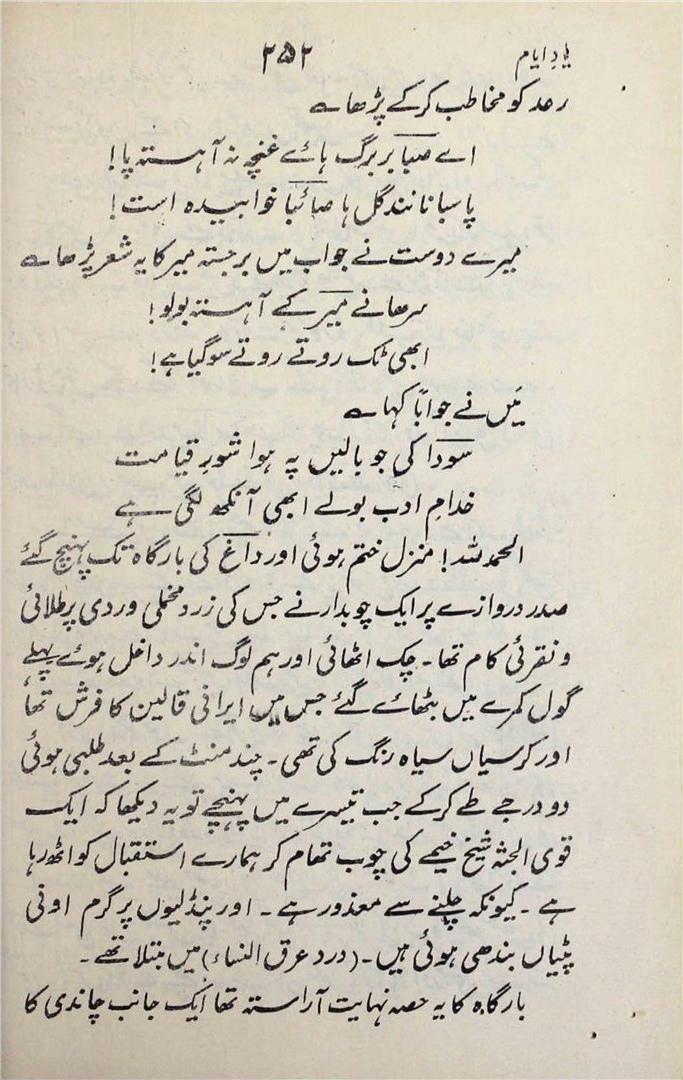 یادِ ایام ۲۵۲
رعد کو مخاطب کرکے پڑھا ؎
اے صبا بر برگ ہائے غنچہ نہ آہستہ پا!
پاسبانانند گل ہا صائبا خوابیدہ است!
میرے دوست نے جواب میں برجستہ میر کا یہ شعر پڑھا ؎
سرھانے میر کے آہستہ بولو!
ابھی ٹک روتے روتے سوگیا ہے!
میں نے جواباً کہا ؎
سودا کی جو بالیں پہ ہوا شورِ قیامت
خدامِ ادب بولے ابھی آنکھ لگی ہے
الحمد للہ! منزل ختم ہوئی اور داغ کی بارگاہ تک پہنچ گئے
صدر دروازے پر ایک چوبدار نے جس کی زرد مخملی وردی پر طلائی
و نقرئی کام تھا۔ چک اٹھائی اور ہم لوگ اندر داخل ہوئے پہلے
گول کمرے میں بٹھائے گئے جس میں ایرانی قالین کا فرش تھا
اور کرسیاں سیاہ رنگ کی تھی۔ چند منٹ کے بعد طلبی ہوئی
دو درجے طے کرکے جب تیسرے میں پہنچے تو یہ دیکھا کہ ایک
قوی الجثہ شیخ خیمے کی چوب تھام کر ہمارے استقبال کو اٹھ رہا
ہے۔ کیونکہ چلنے سے معذور ہے۔ اور پنڈلیوں پر گرم اونی
پٹیاں بندھی ہوئی ہیں۔ (درد عرق النساء) میں مبتلا تھے۔
بارگاہ کا یہ حصہ نہایت آراستہ تھا ایک جانب چاندی کا